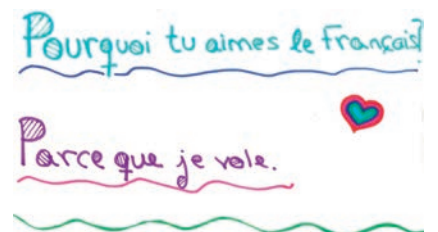 Pourquoi tu aimes le Français?
Parce que je vole.